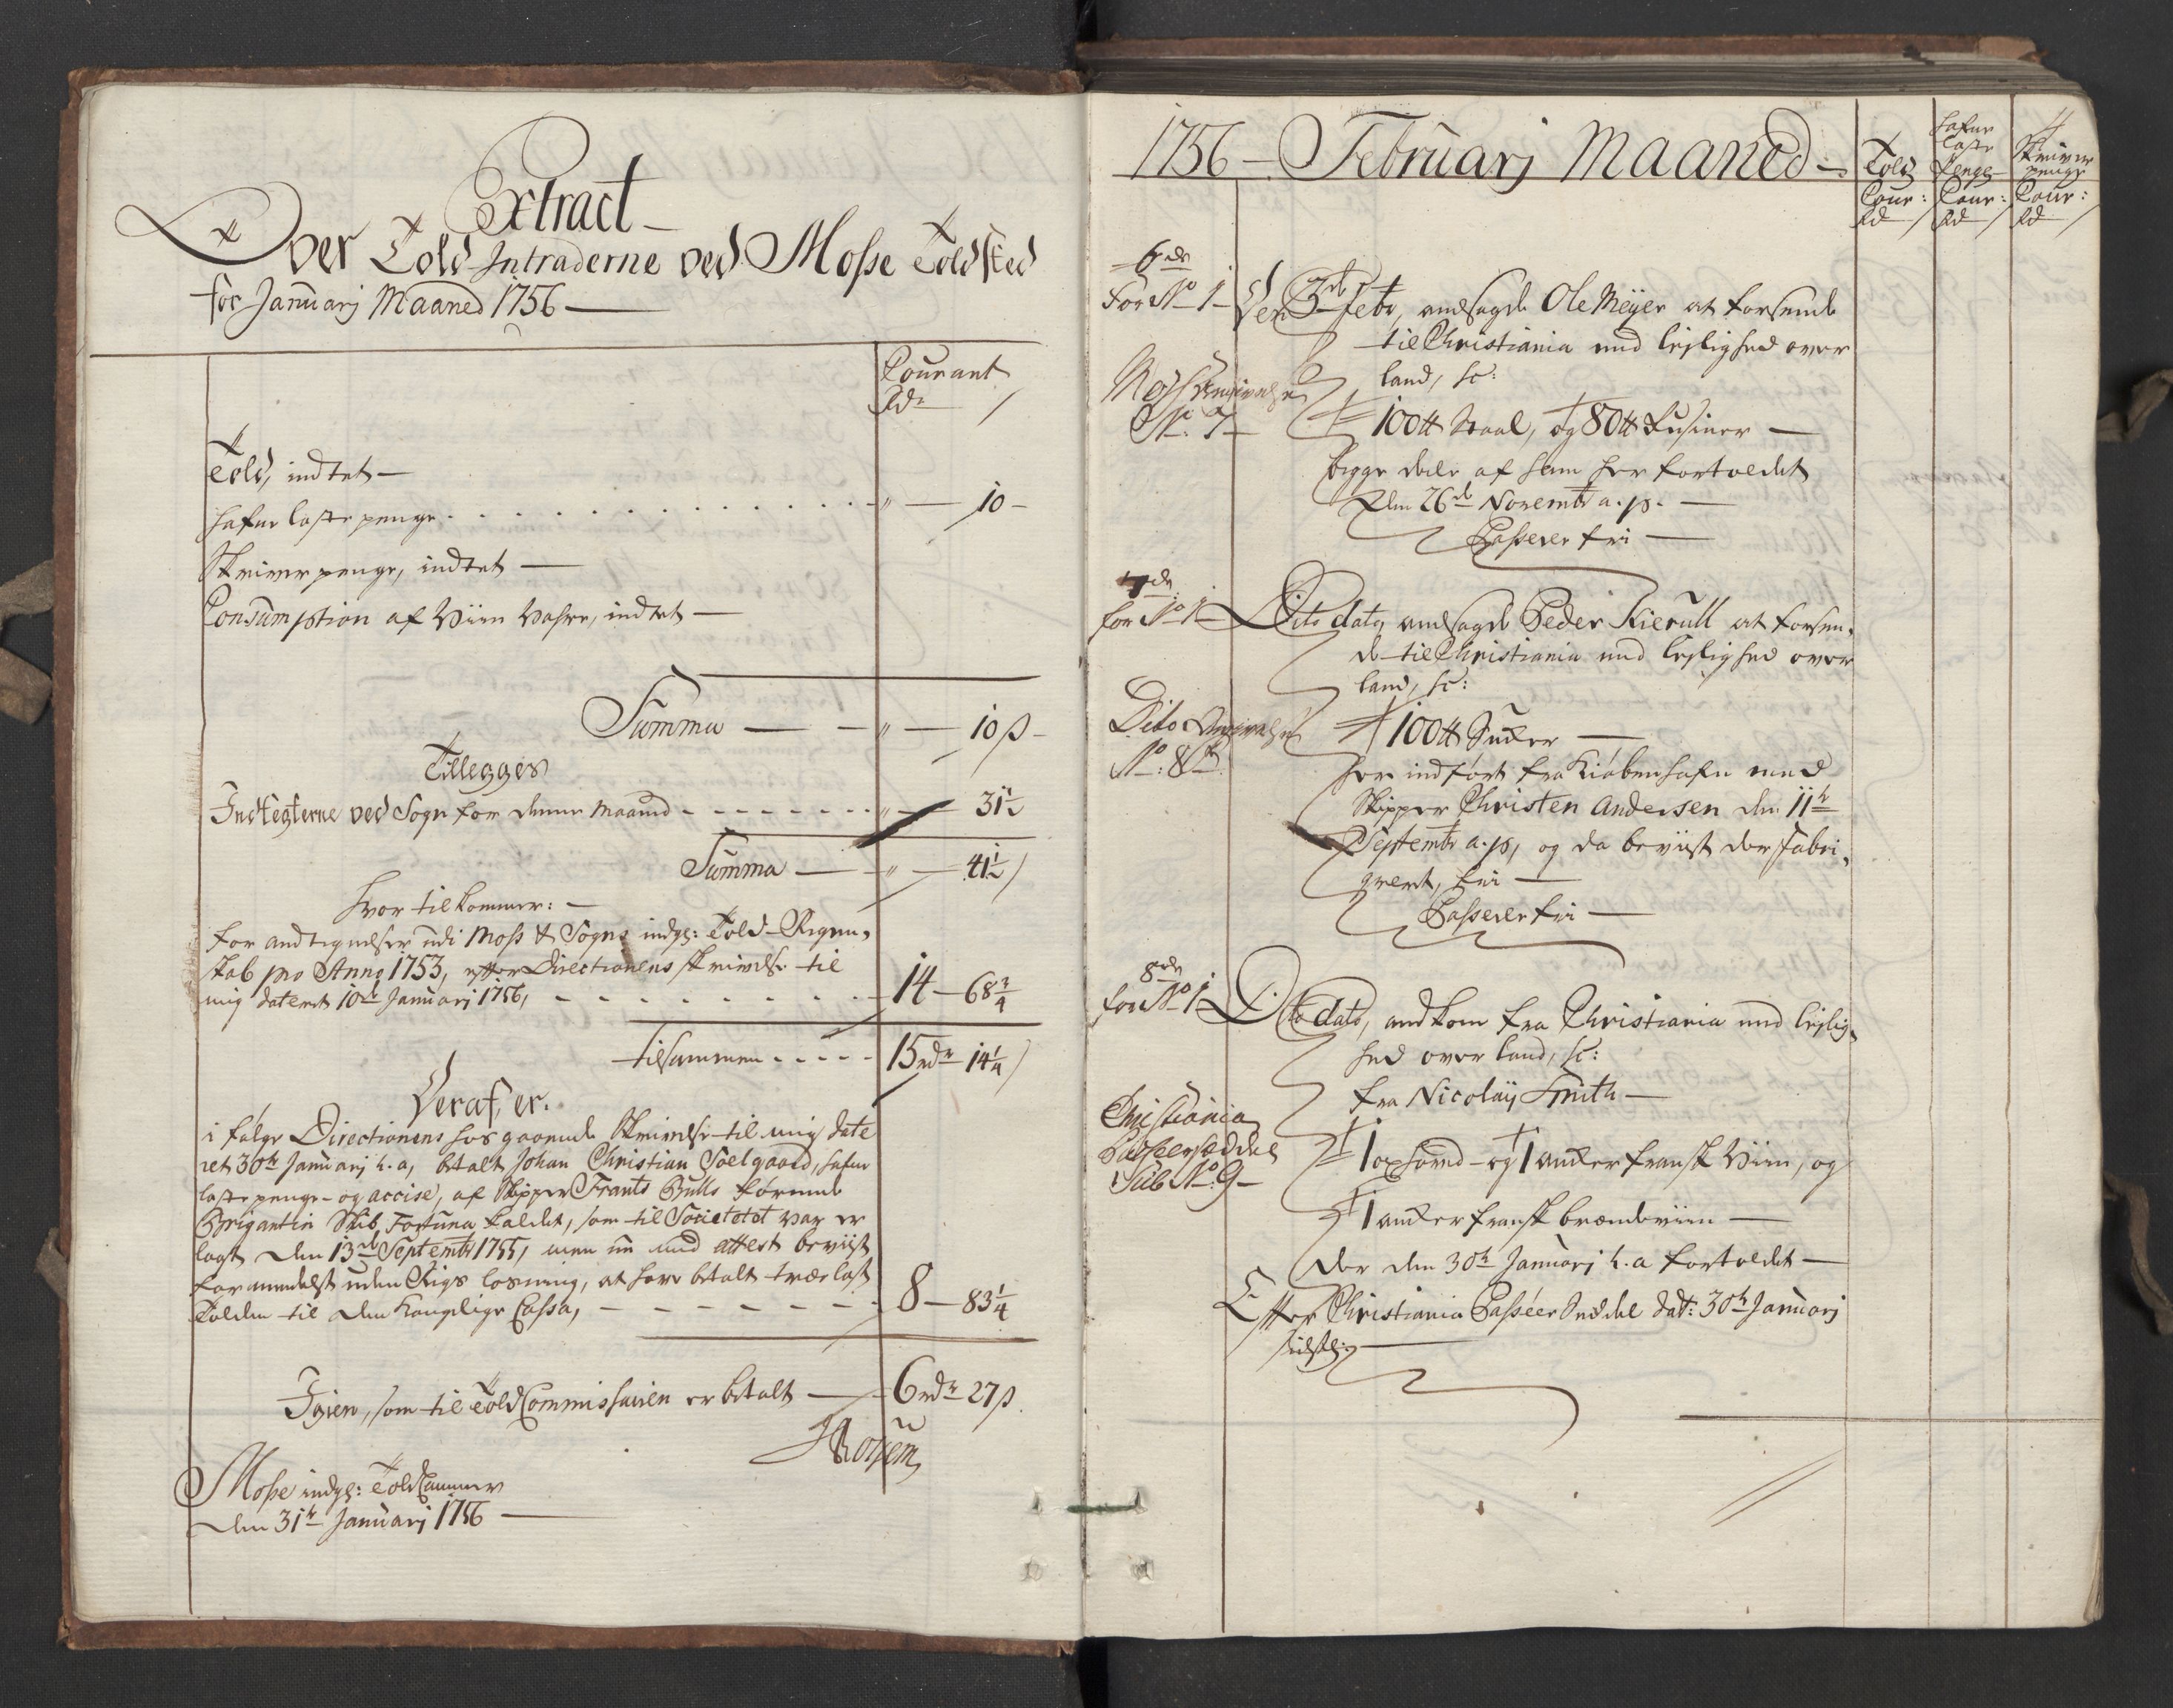 Extract
Over Told Intraderne ved Mosse Toldsted
for Januarj Maaned 1756
Courant
Rdr ß
Told, indtet
hafne laste penge " 10
Skriver penge, indtet
Consumption af Viin Vahre, indtet
Summa " 10 ß
Tillegges
Indtegterne ved Sogn for denne Maaned " 31 1/2
Summa " 41 1/2 ß
hvor tilkommer:
for andtegnelser udi Moss & Sogns indg: Told-Regen-
skab pro Anno 1753, efter Directionens skrivelse til
mig dateret 10de Januarj 1756, 14 - 68 3/4
tilsammen 15 rdr 14 1/4 ß
Deraf er.
i følge Directionens hos gaaende Skrivelse til mig date
ret 30te Januarj h. a, betalt Johan Christian Soelgaard, hafne
laste penge og accise, af Skipper Frants Bulls førende
Brigantin Skib, Fortuna kaldet, som til Societetet var er
lagt den 13de Septembr 1755, men nu med attest beviist
formedelst uden Rigs losning, at have betalt træelast
Tolden til den Kongelige Cassa, 8 - 83 1/4
Igien, som til Told Commissairen er betalt 6 rdr 27 ß
Mosse indg: Told Cammer
den 31te Januarj 1756
1756 Februarj Maaned
4
Told
hafne
laste
Penge
Skriver
penge
Cour: Cour: Cour:
Rd ß Rd ß Rd ß
6de
for No 1
Den 3de Febr, andsagde Ole Meÿer at forsende
til Christiania med leylighed over
land, sc:
Moss Angivelse
No. 7
100 ℔ Staal, og 80 ℔ Rusiner
begge deele af ham her fortoldet
den 26de Novembr a. p.
Passerer frie
7de
for No 1
Dito dato, andsagde Peder Kierulf at forsen-
de til Christiania med leylighed over
land, sc:
Dito Angivelse
No: 8
100 ℔ Sucker
her indført fra Kiøbenhafn med
Skipper Christen Andersen den 11te
Septembr a. p, og da beviist der fabri-
queret, frie
Passerer frie
8de
for No 1
Dito dato, andkom fra Christiania med leylig-
hed over land, sc:
fra Nicolaÿ Smith
Christiania
Passeerseddel
Sub No: 9
1 oxhoved og 1 ancker fransk Viin, og
1 ancker fransk brændeviin
der den 30te Januarj h. a fortoldet
Efter Christiania Passéer Seddel dat: 30te Januarj
sidstl: